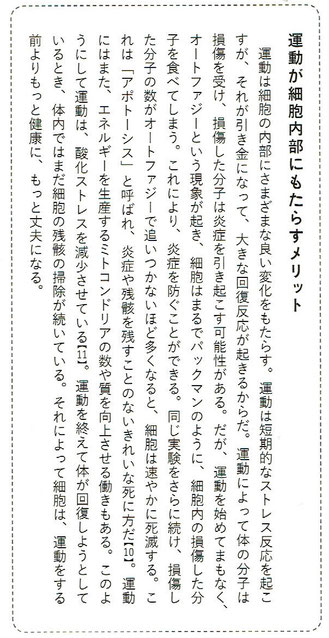 運動が細胞内部にもたらすメリット
　運動は細胞の内部にさまざまな良い変化をもたらす。運動は短期的なストレス反応を起こ
すが、それが引き金になって、大きな回復反応が起きるからだ。運動によって体の分子は
損傷を受け、損傷した分子は炎症を引き起こす可能性がある。だが、運動を始めてまもなく、
オートファジーという現象が起き、細胞はまるでパックマンのように、細胞内の損傷した分
子を食べてしまう。これにより、炎症を防ぐことができる。同じ実験をさらに続け、損傷し
た分子の数がオートファジーで追いつかないほど多くなると、細胞は速やかに死滅する。こ
れは「アポトーシス」と呼ばれ、炎症や残骸を残すことのないきれいな死に方だ【10】。運動
にはまた、エネルギーを生産するミトコンドリアの数や質を向上させる働きもある。このよ
うにして運動は、酸化ストレスを減少させている【11】。運動を終えて体が回復しようとして
いるとき、体内ではまだ細胞の残骸の掃除が続いている。それによって細胞は、運動をする
前よりもっと健康に、もっと丈夫になる。